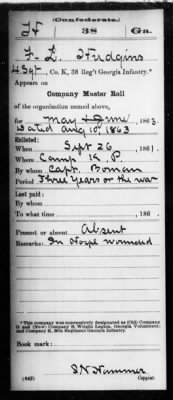 (Confederate.)
H 38 Ga.
F. L. Hudgins
4 Sgt, Co. K, 38 Reg't Georgia Infantry.*
Appears on
Company Muster Roll
of the organization named above,
for May & June, 1863.
Dated Aug 10" 1863
Enlisted:
When Sept 26, 1861.
Where Camp K. P.
By whom Capt. Boman
Period Three Years or the war
Last paid:
By whom
To what time , 186 .
Present or absent Absent
Remarks: In Hospt wounded
*This company was successively designated as (Old) Company
G and (New) Company E, Wright Legion, Georgia Volunteers;
and Company K, 38th Regiment Georgia Infantry.
Book mark:
(642)
Copyist.